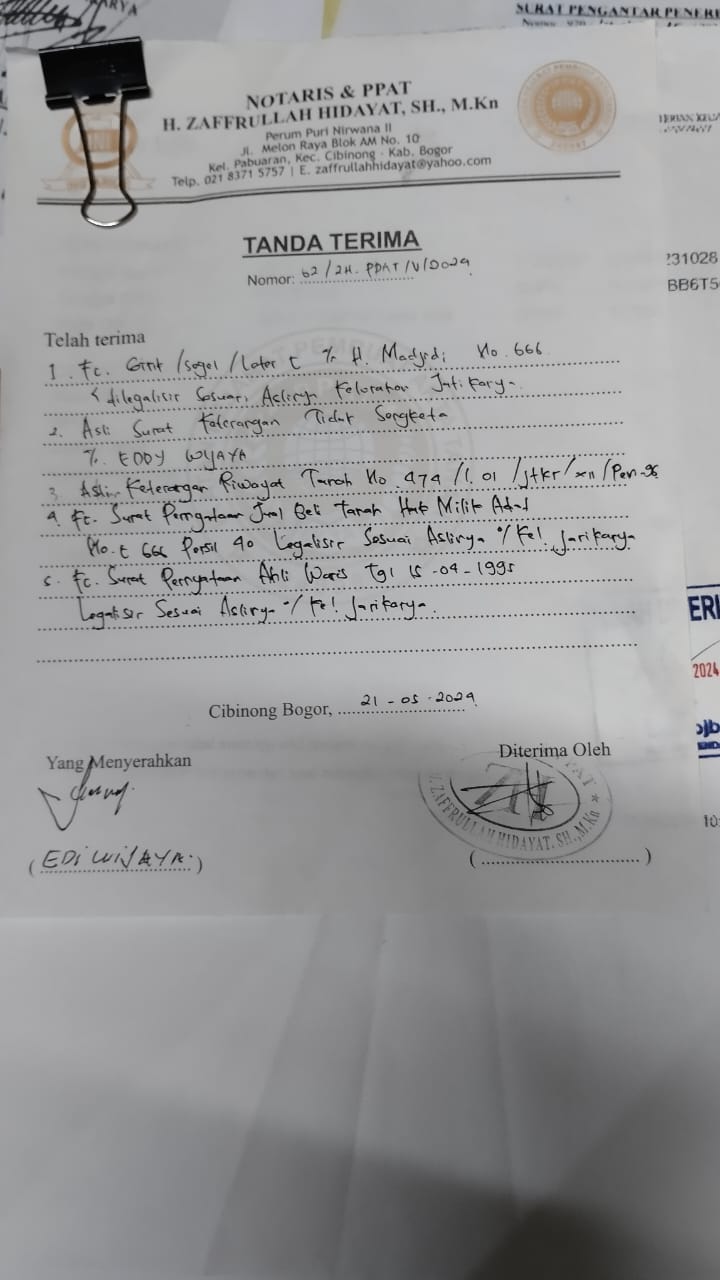 ARYA
SURAT PENGANTAR PENERI
NOTARIS & PPAT
H. ZAFFRULLAH HIDAYAT, SH., M.Kn
Perum Puri Nirwana II
Jl. Melon Raya Blok AM No. 10
Kel. Pabuaran, Kec. Cibinong - Kab. Bogor
Telp. 021 8371 5757 | E. zaffrullahhidayat@yahoo.com
TANDA TERIMA
Nomor: 62/ZH. PPAT/V/2024
231028
BB6T5
Telah terima
1. Fc. Girik /Segel /Leter C % H. Madjedi No. 666
dilegalisir Sesuai Aslinya Kelurahan Jatikarya
2. Asli Surat Keterangan Tidak Sengketa
% EDDY WIJAYA
3. Asli Keterangan Riwayat Tanah No 474/1.01/Jtkr/XII/Pen-96
4. Fc. Surat Pernyataan Jual Beli Tanah Hak Milik Adat
No. C 666 Persil 40 Legalisir Sesuai Aslinya % Kel. Jatikarya
5. Fc. Surat Pernyataan Ahli Waris Tgl 15-04-1995
Legalisir Sesuai Aslinya % Kel. Jatikarya.
ERI
2024
Cibinong Bogor, 21-05-2024
Yang Menyerahkan
Diterima Oleh
H. ZAFFRULLAH HIDAYAT, SH., M.Kn
(EDI WIJAYA.)
(..............................)